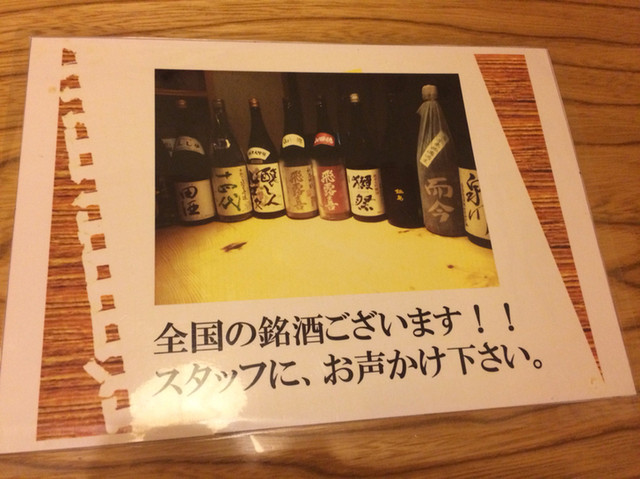 田酒
十四代
醸し人
飛露喜
飛露喜
獺祭
而今
全国の銘酒ございます！！
スタッフに、お声かけ下さい。